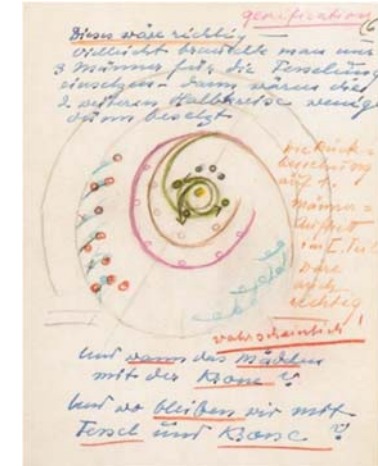 (6
Dieses wäre richtig –
vielleicht brauchte man nur
3 Männer für die Fesselung
einsetzen – dann wären die
2 weiteren Halbkreise wenig
dünn besetzt
die Rück=
auf 1.
Männer =
Auftritt
im I. Teil
wäre
auch
richtig
wahrscheinlich!
Und wann das Mädchen
mit der Krone ?
Und wo bleiben wir mit
Fessel und Krone ?